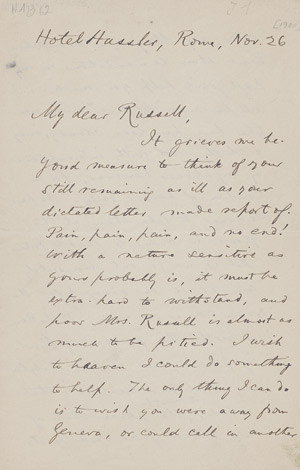 HAB 62
Hotel Hassler, Rome, Nov. 26
My dear Russell,
It grieves me be-
yond measure to think of your
still remaining as ill as your
dictated letter made report of.
Pain, pain, pain, and no end!
With a nature sensitive as
yours probably is, it must be
extra-hard to withstand, and
poor Mrs. Russell is almost as
much to be pitied. I wish
to heaven I could do something
to help. The only thing I can do
is to wish you were away from
Geneva, or could call in another